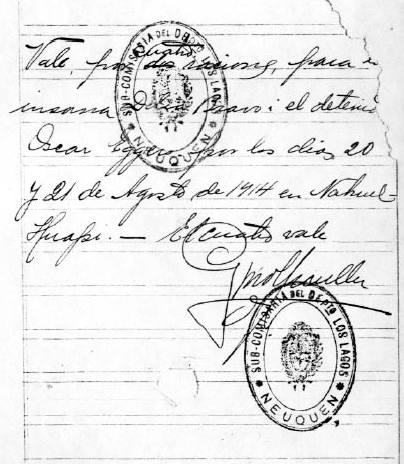 cuatro
Vale, por dos raciones, para
insana Bravo i el deteni
Oscar por los dias 20
y 21 de Agosto de 1914 en Nahuel-
Huapi. — El cuatro vale
SUB-COMISARIA DEL DEPTO LOS LAGOS
NEUQUEN
SUB-COMISARIA DEL DEPTO LOS LAGOS
NEUQUEN